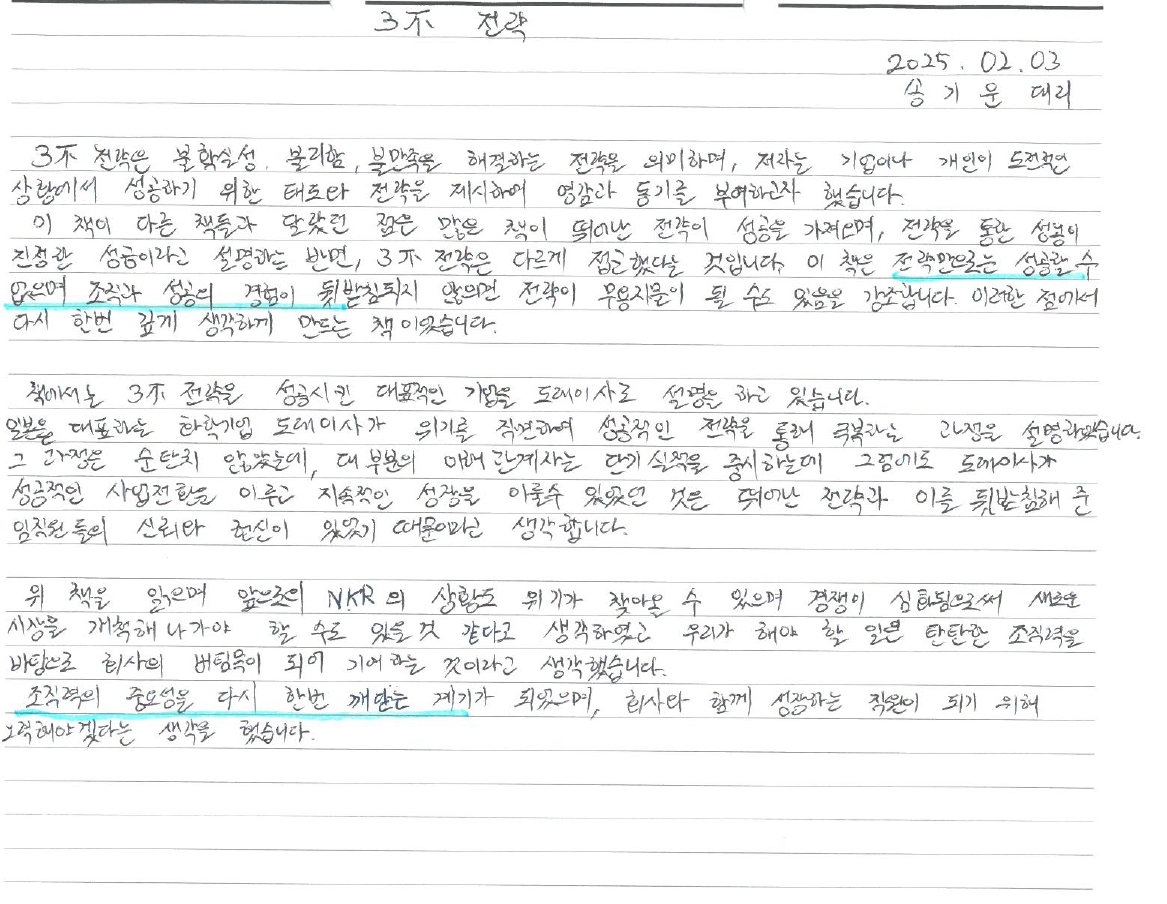 3不 전략
2025. 02. 03
송기운 대리
3不 전략은 불확실성, 불리함, 불만족을 해결하는 전략을 의미하며, 저자는 기업이나 개인이 도전적인
상황에서 성공하기 위한 태도와 전략을 제시하여 영감과 동기를 부여하고자 했습니다.
이 책이 다른 책들과 달랐던 점은 많은 책이 뛰어난 전략이 성공을 가져오며, 전략을 통한 성공이
진정한 성공이라고 설명하는 반면, 3不 전략은 다르게 접근했다는 것입니다. 이 책은 전략만으로는 성공할 수
없으며 조직과 성공의 경험이 뒷받침되지 않으면 전략이 무용지물이 될 수도 있음을 강조합니다. 이러한 점에서
다시 한번 깊게 생각하게 만드는 책이었습니다.
책에서는 3不 전략을 성공시킨 대표적인 기업을 도레이사로 설명을 하고 있습니다.
일본을 대표하는 화학기업 도레이사가 위기를 직면하여 성공적인 전략을 통해 극복하는 과정을 설명하였습니다.
그 과정은 순탄치 않았는데, 대부분의 이해관계자는 단기 실적을 중시하는데 그럼에도 도레이사가
성공적인 사업전환을 이루고 지속적인 성장을 이룰수 있었던 것은 뛰어난 전략과 이를 뒷받침해 준
임직원들의 신뢰와 헌신이 있었기 때문이라고 생각합니다.
위 책을 읽으며 앞으로의 NKR의 상황도 위기가 찾아올 수 있으며 경쟁이 심화됨으로써 새로운
시장을 개척해 나가야 할 수도 있을 것 같다고 생각하였고 우리가 해야 할 일은 탄탄한 조직력을
바탕으로 회사의 버팀목이 되어 기여하는 것이라고 생각했습니다.
조직력의 중요성을 다시 한번 깨닫는 계기가 되었으며, 회사와 함께 성장하는 직원이 되기 위해
노력해야겠다는 생각을 했습니다.